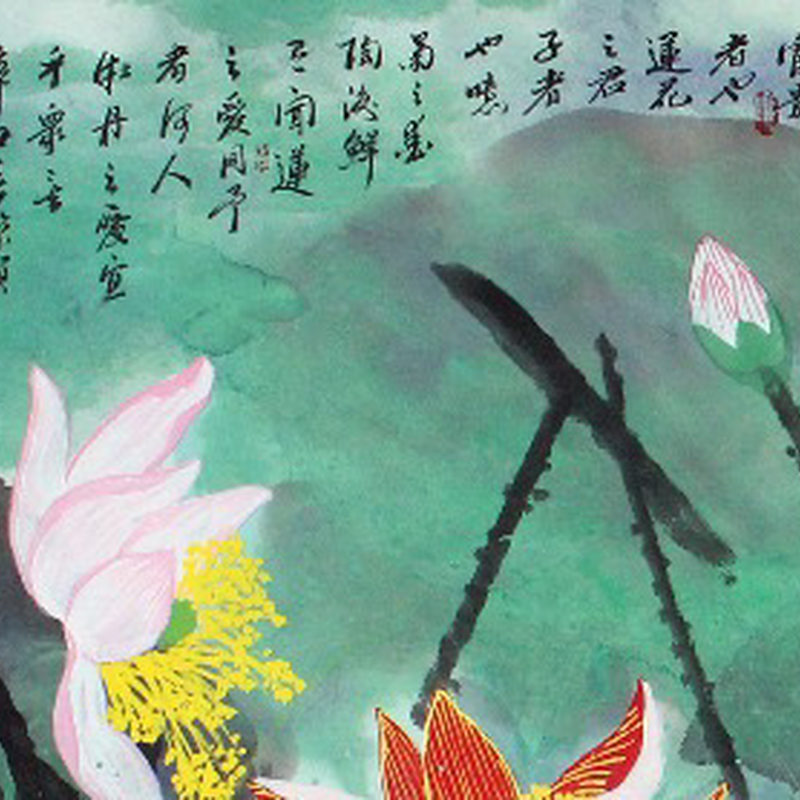 者也
蓮花
之君
子者
也噫
菊之愛
陶後鮮
有聞蓮
之愛同予
者何人
牡丹之愛宜
乎衆